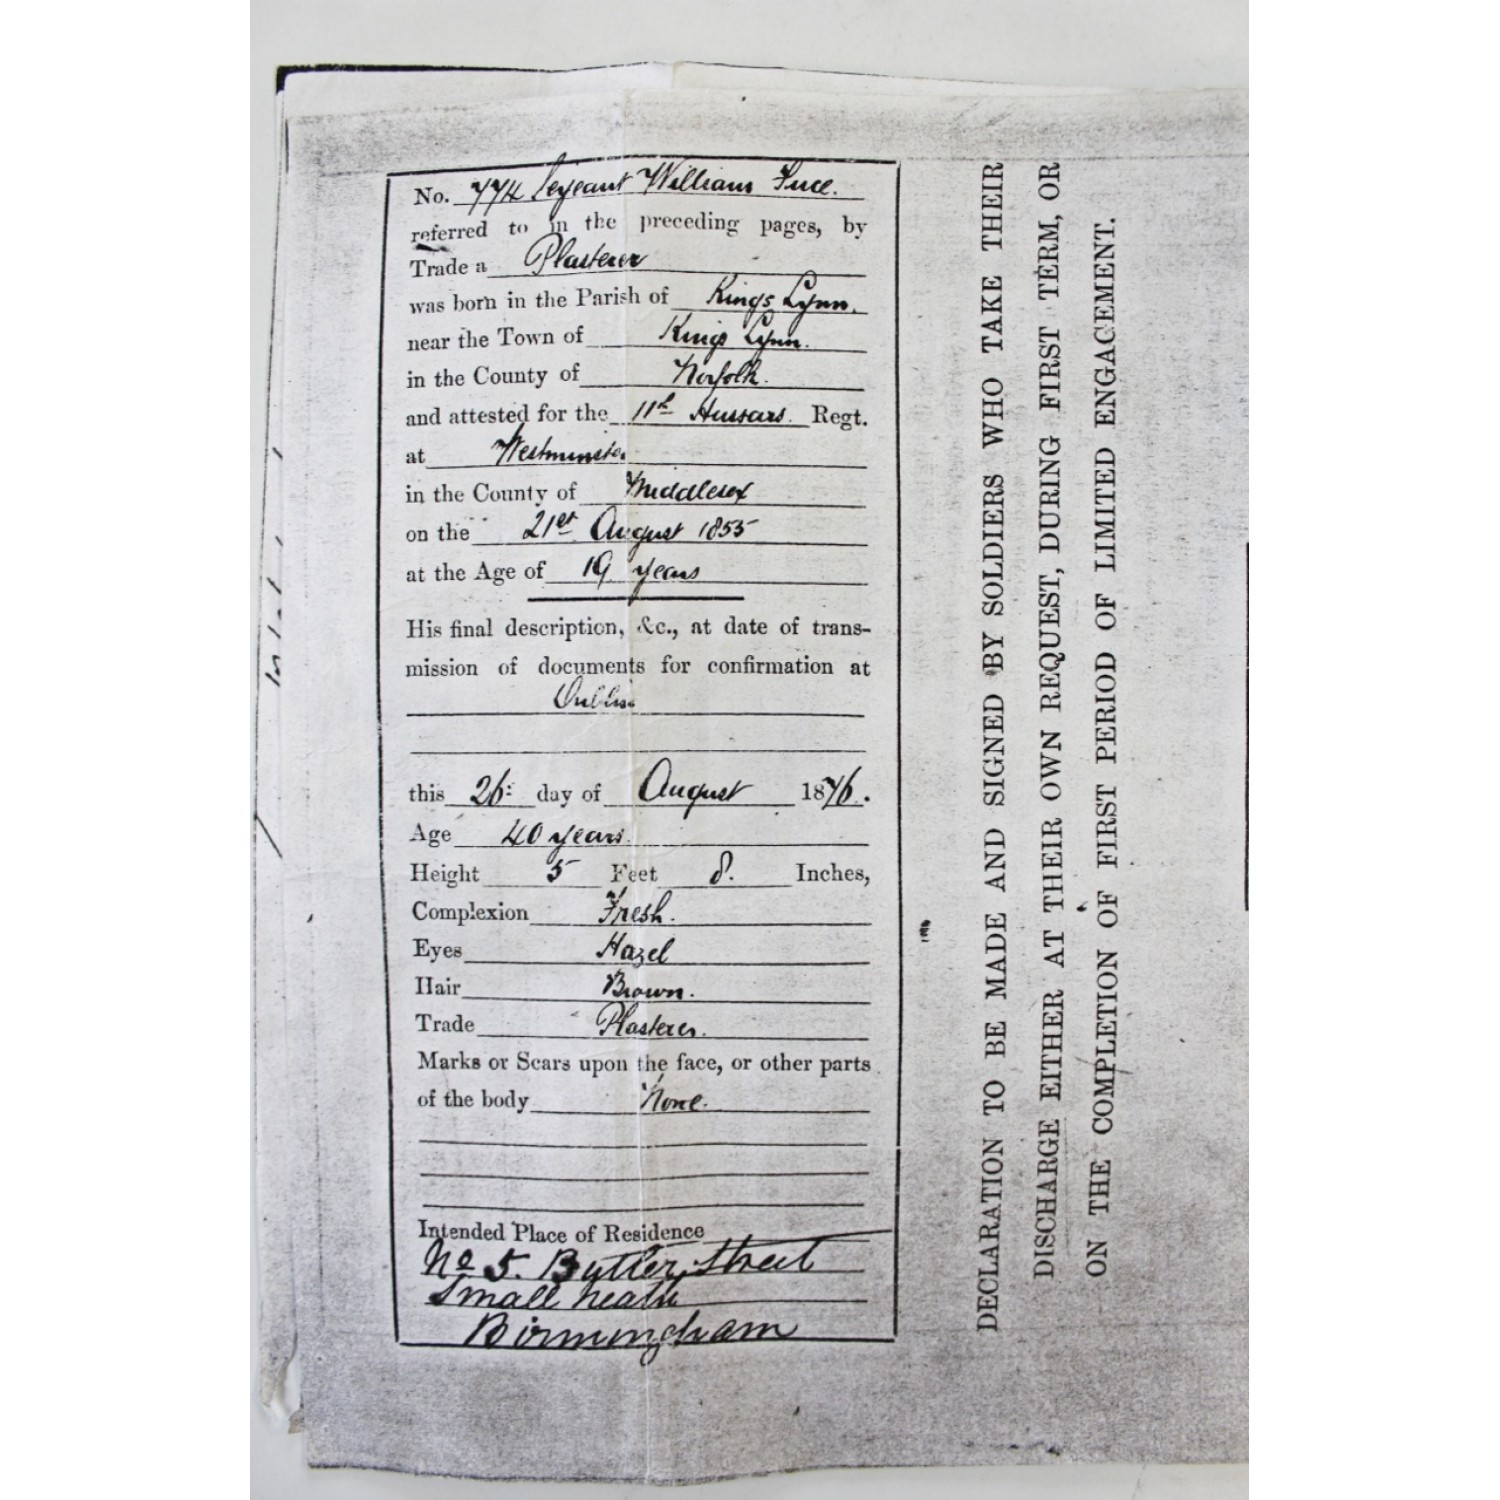 No. 774 Serjeant William
referred to in the preceding pages, by
Trade a Plasterer
was born in the Parish of Kings Lynn.
near the Town of Kings Lynn.
in the County of Norfolk.
and attested for the 11th Hussars. Regt.
at Westminster
in the County of Middlesex
on the 21st August 1855
at the Age of 19 years
His final description, &c., at date of trans-
mission of documents for confirmation at
Dublin
this 26: day of August 1876.
Age 40 years.
Height 5 Feet 8. Inches,
Complexion Fresh.
Eyes Hazel
Hair Brown.
Trade Plasterer.
Marks or Scars upon the face, or other parts
of the body None.
Intended Place of Residence
No 5. Butler Street
Small heath
Birmingham
DECLARATION TO BE MADE AND SIGNED BY SOLDIERS WHO TAKE THEIR
DISCHARGE EITHER AT THEIR OWN REQUEST, DURING FIRST TERM, OR
ON THE COMPLETION OF FIRST PERIOD OF LIMITED ENGAGEMENT.